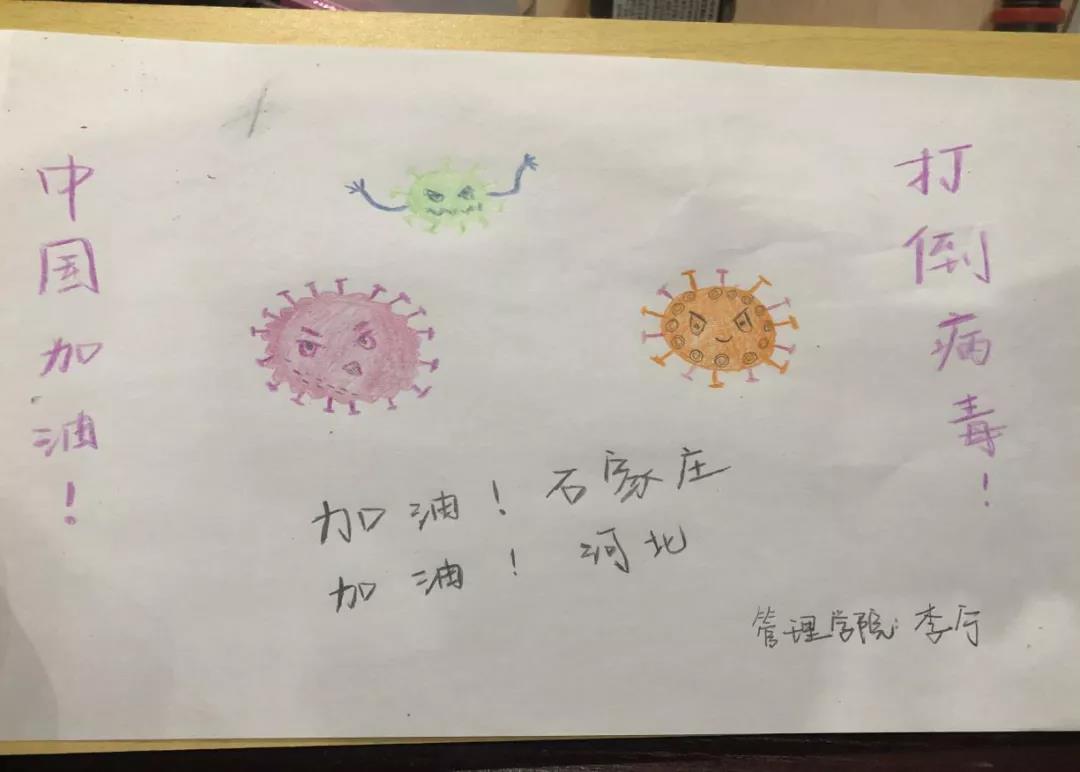 中国加油！
打倒病毒！
加油！石家庄
加油！河北
管理学院：李行